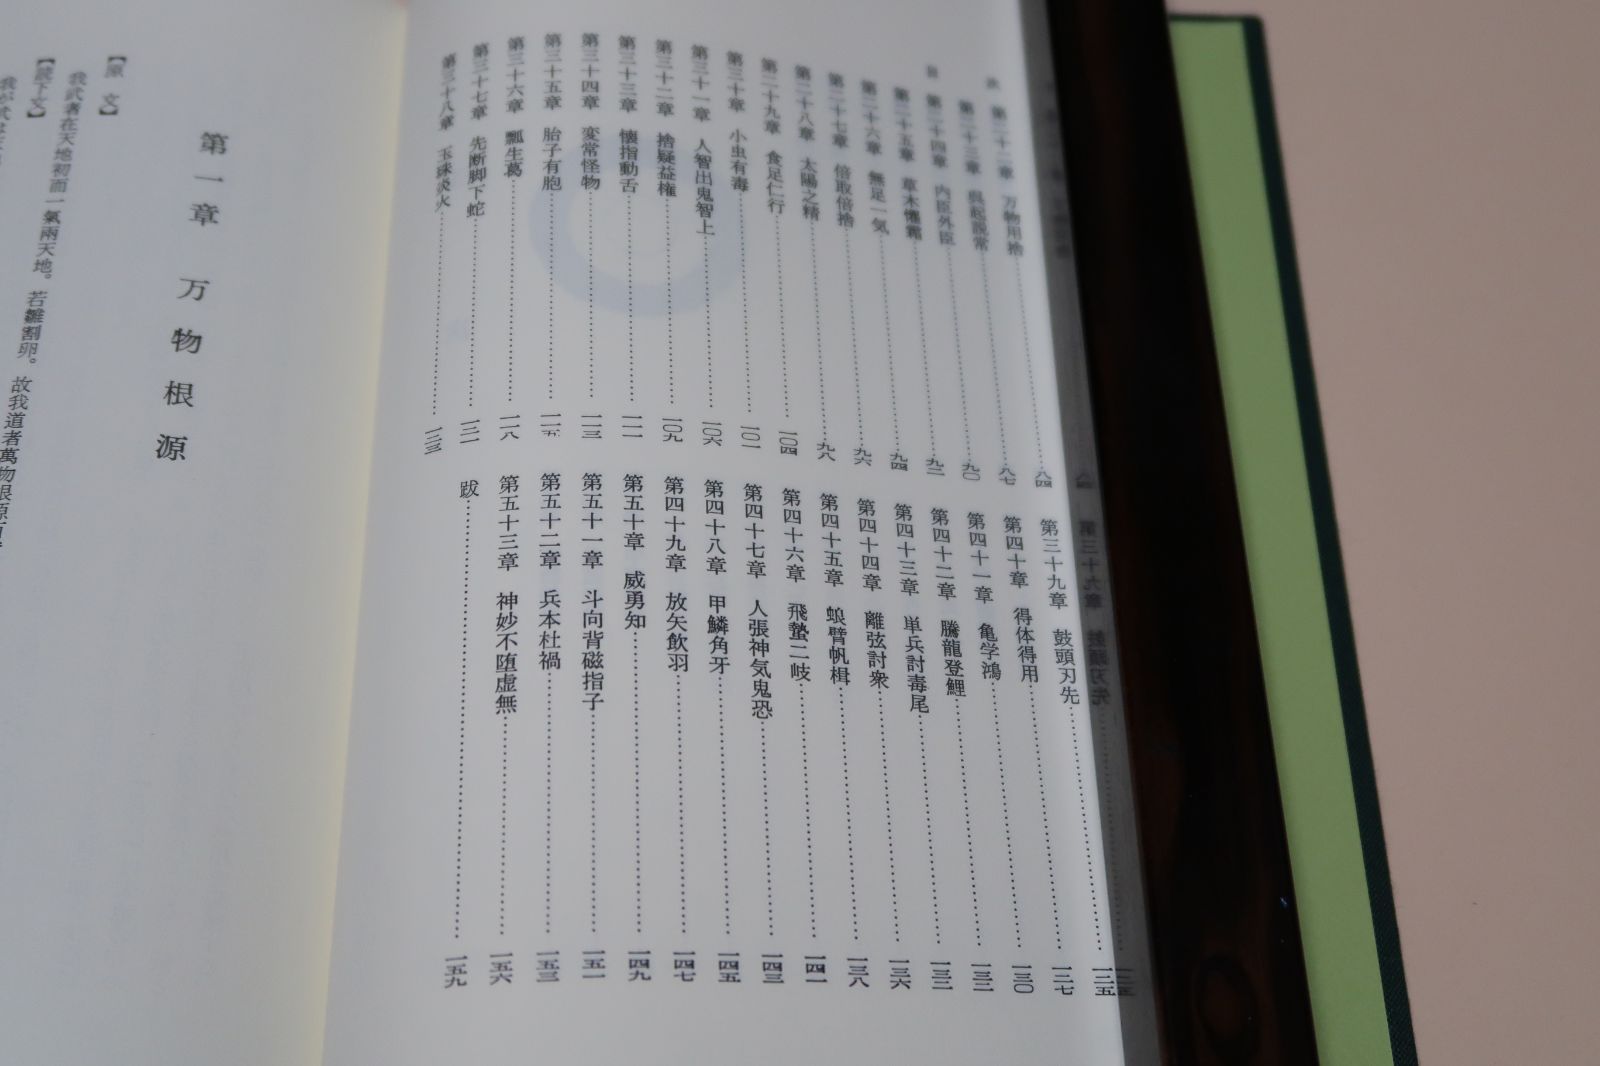 目次
第二十二章 万物用捨……八四
第二十三章 呉起説常……八七
第二十四章 内臣外臣……九〇
第二十五章 草木懼霜……九二
第二十六章 無足一気……九四
第二十七章 倍取倍捨……九六
第二十八章 太陽之精……九八
第二十九章 食足仁行……一〇四
第三十章 小虫有毒……一〇一
第三十一章 人智出鬼智上……一〇六
第三十二章 捨疑益権……一〇九
第三十三章 懐指動舌……一一一
第三十四章 変常怪物……一一三
第三十五章 胎子有胞……一一五
第三十六章 瓢生葛……一一八
第三十七章 先断脚下蛇……一二一
第三十八章 玉珠炎火……一二三
第三十九章 鼓頭刃先……一二五
第四十章 得体得用……一二七
第四十一章 亀学鴻……一三〇
第四十二章 騰龍登鯉……
第四十三章 単兵討毒尾……
第四十四章 離弦討衆……一三六
第四十五章 螂臂帆楫……一三八
第四十六章 飛蟄二岐……一四一
第四十七章 人張神気鬼恐……一四三
第四十八章 甲鱗角牙……一四五
第四十九章 放矢飲羽……一四七
第五十章 威勇知……一四九
第五十一章 斗向背磁指子……一五一
第五十二章 兵本杜禍……一五三
第五十三章 神妙不堕虚無……一五六
跋……一五九
第一章 万物根源
【原文】
我武者在天地初而一氣兩天地。若雛割卵。故我道者萬物根源
【読下文】
我が武は